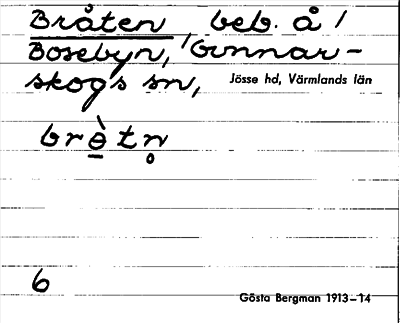 Bråten, beb. å /
Bosebyn, Gunnar-
skogs sn, Jösse hd, Värmlands län
brèt
6
Gösta Bergman 1913–14